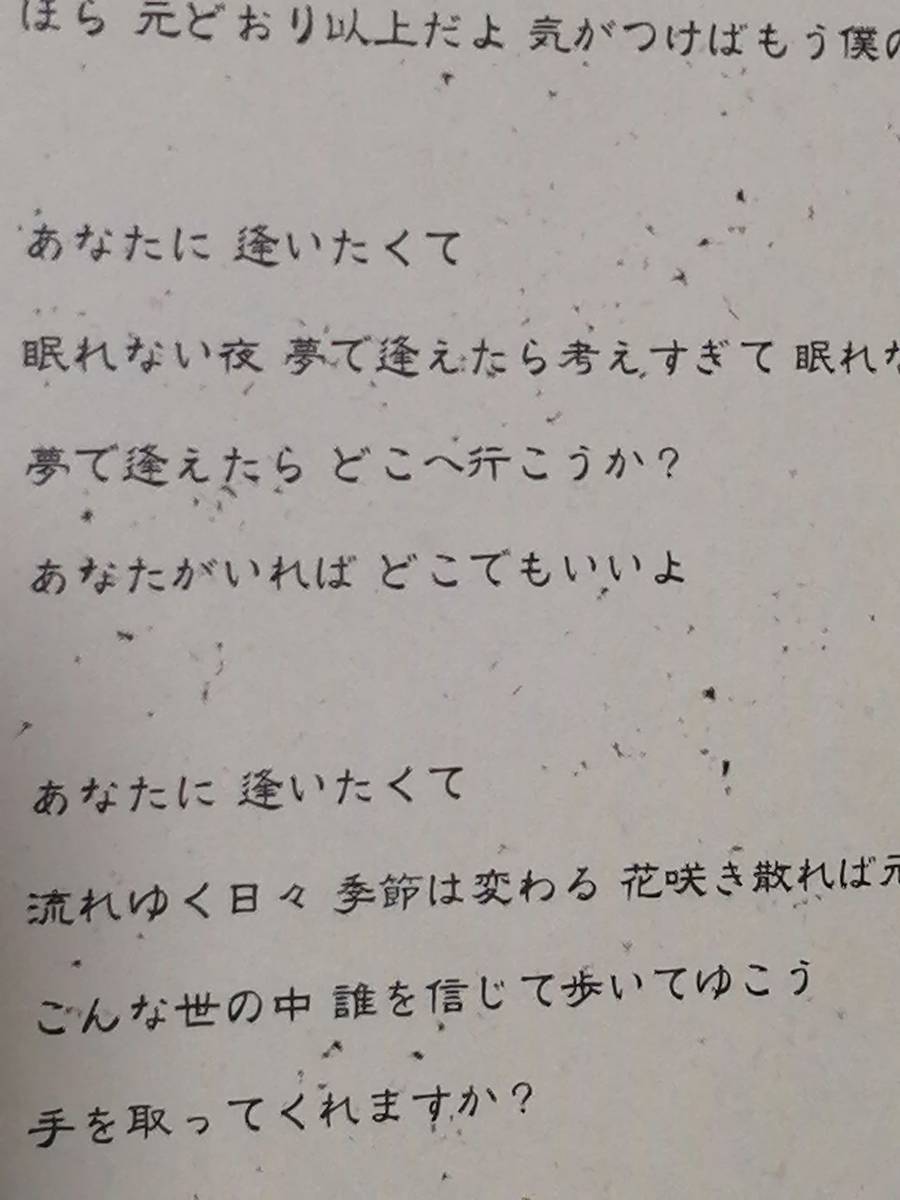 ほら 元どおり以上だよ 気がつけばもう僕の
あなたに 逢いたくて
眠れない夜 夢で逢えたら考えすぎて 眠れな
夢で逢えたら どこへ行こうか?
あなたがいれば どこでもいいよ
あなたに 逢いたくて
流れゆく日々 季節は変わる 花咲き散れば元
こんな世の中 誰を信じて歩いてゆこう
手を取ってくれますか?